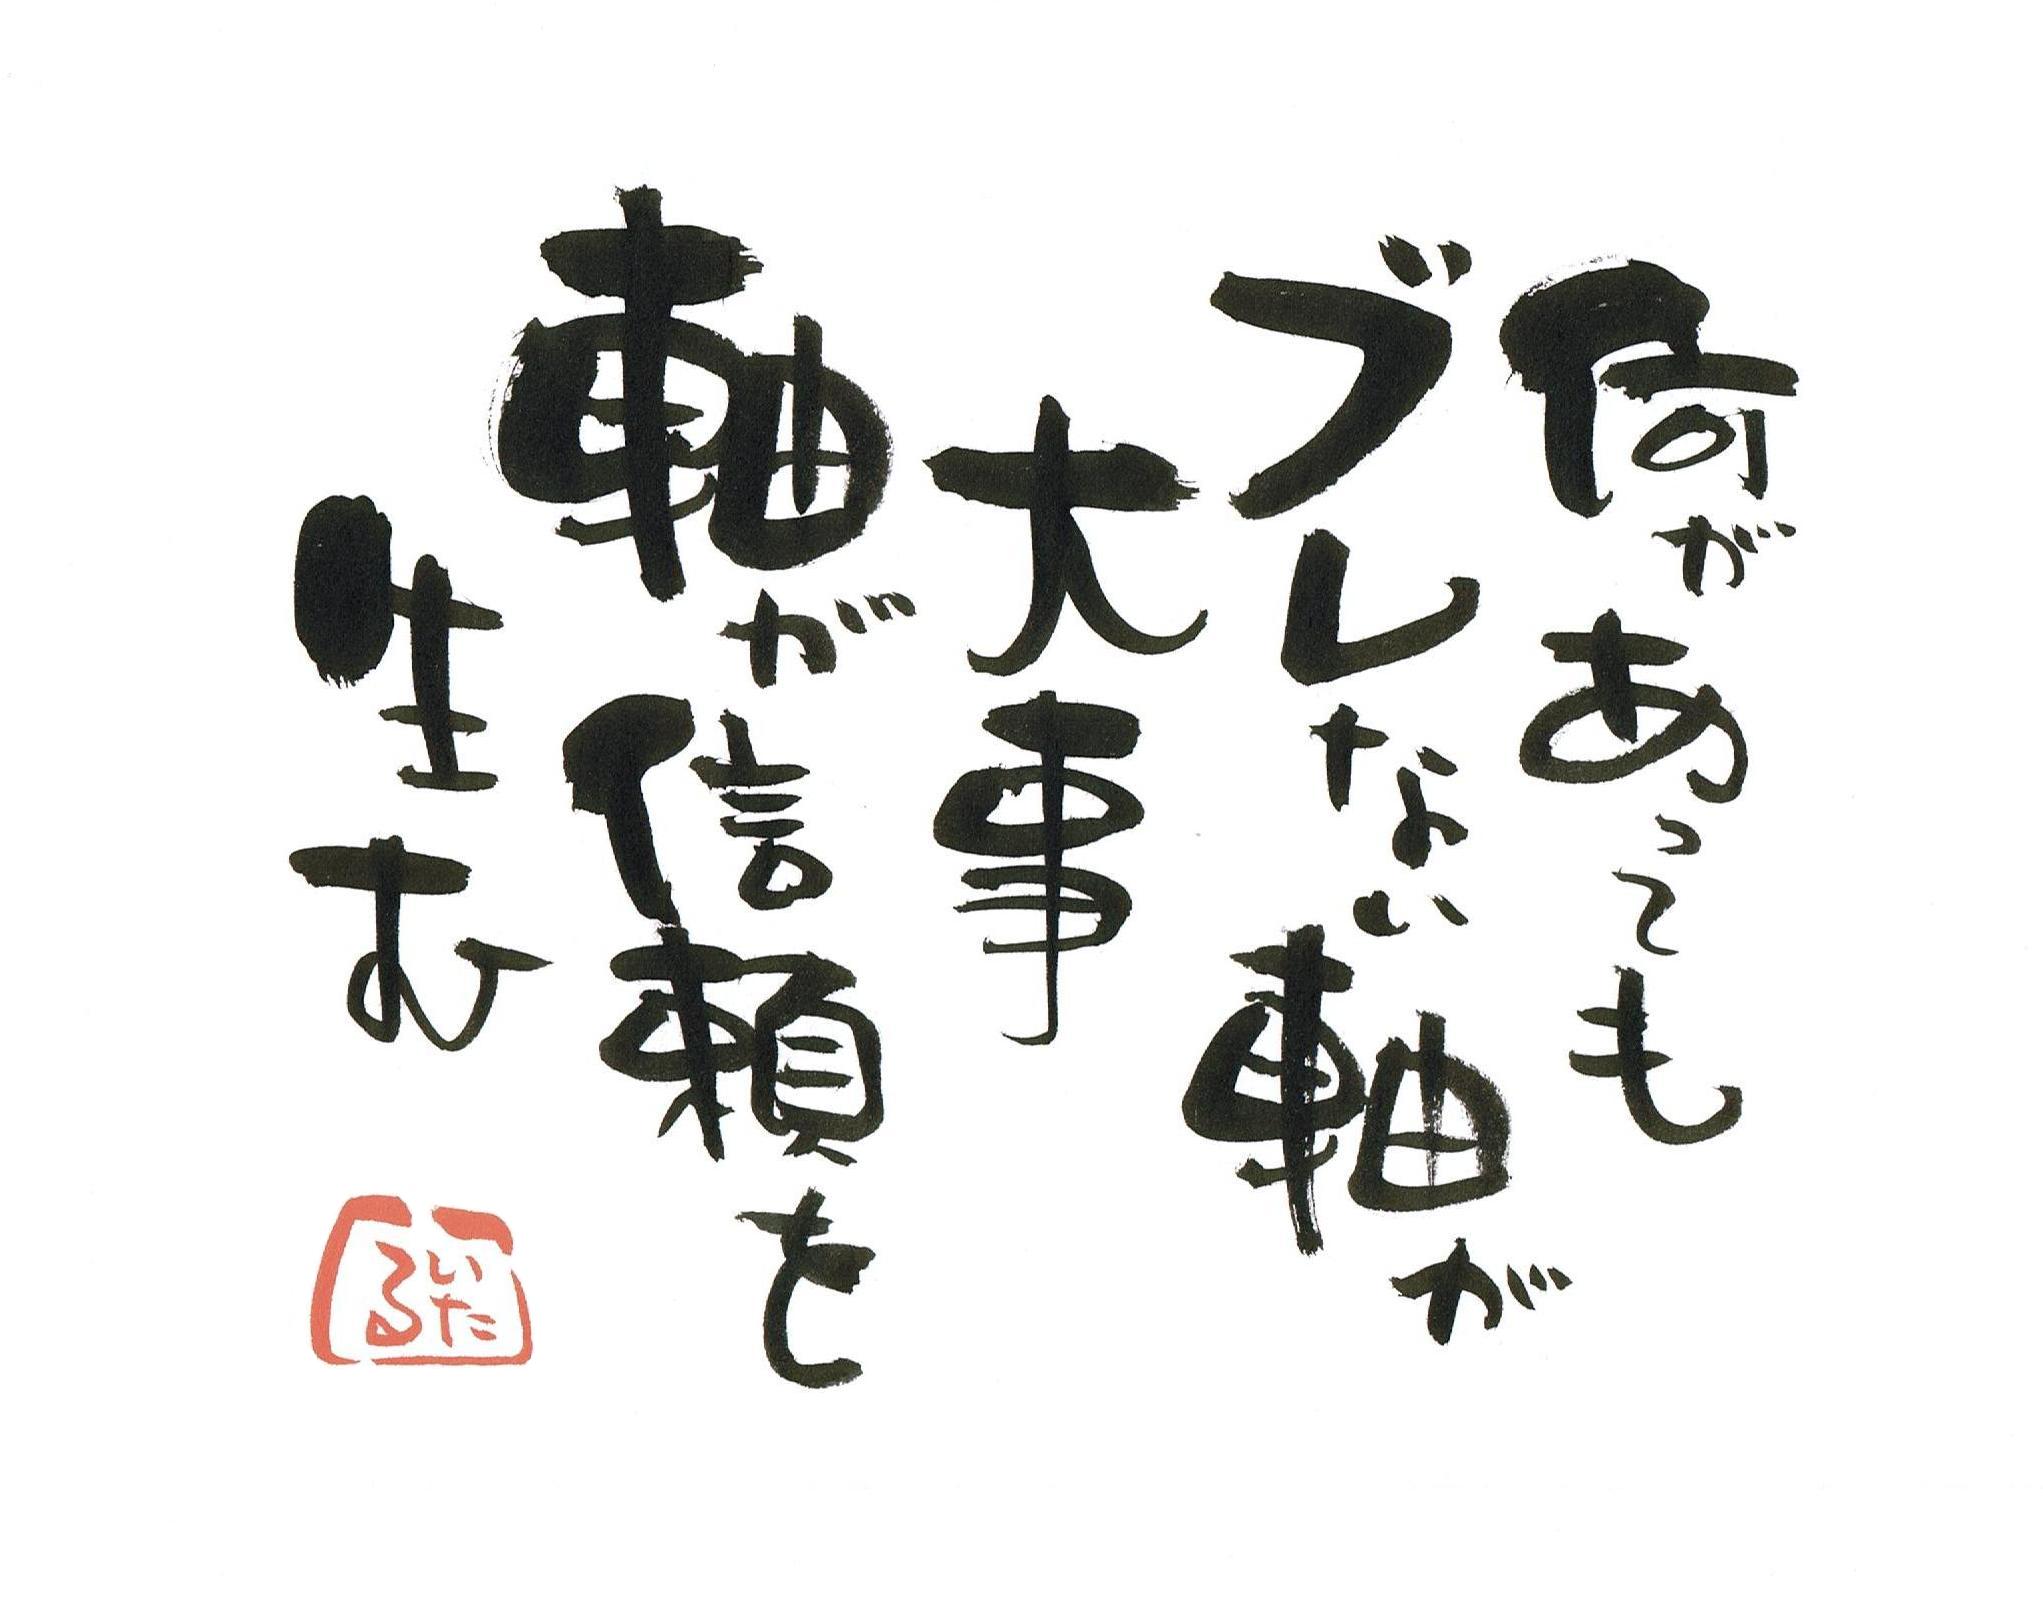 何があっても
ブレない軸が
大事
軸が信頼を
生む
いた
る